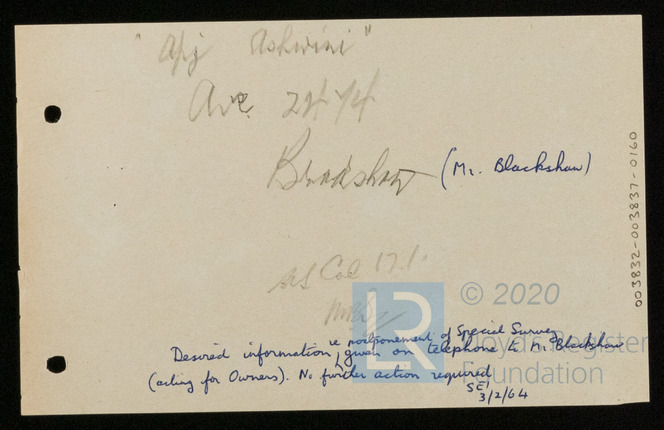 "Apj Ashwini"
Ave 24/4
Bradshaw (Mr. Blackshaw)
as Col 17.1.
re postponement of Special Survey
Desired information, given on telephone to Mr. Blackshaw
(acting for Owners). No further action required.
SE
3/2/64
003832-003837-0160
© 2020
LR
Lloyd's Register
Foundation